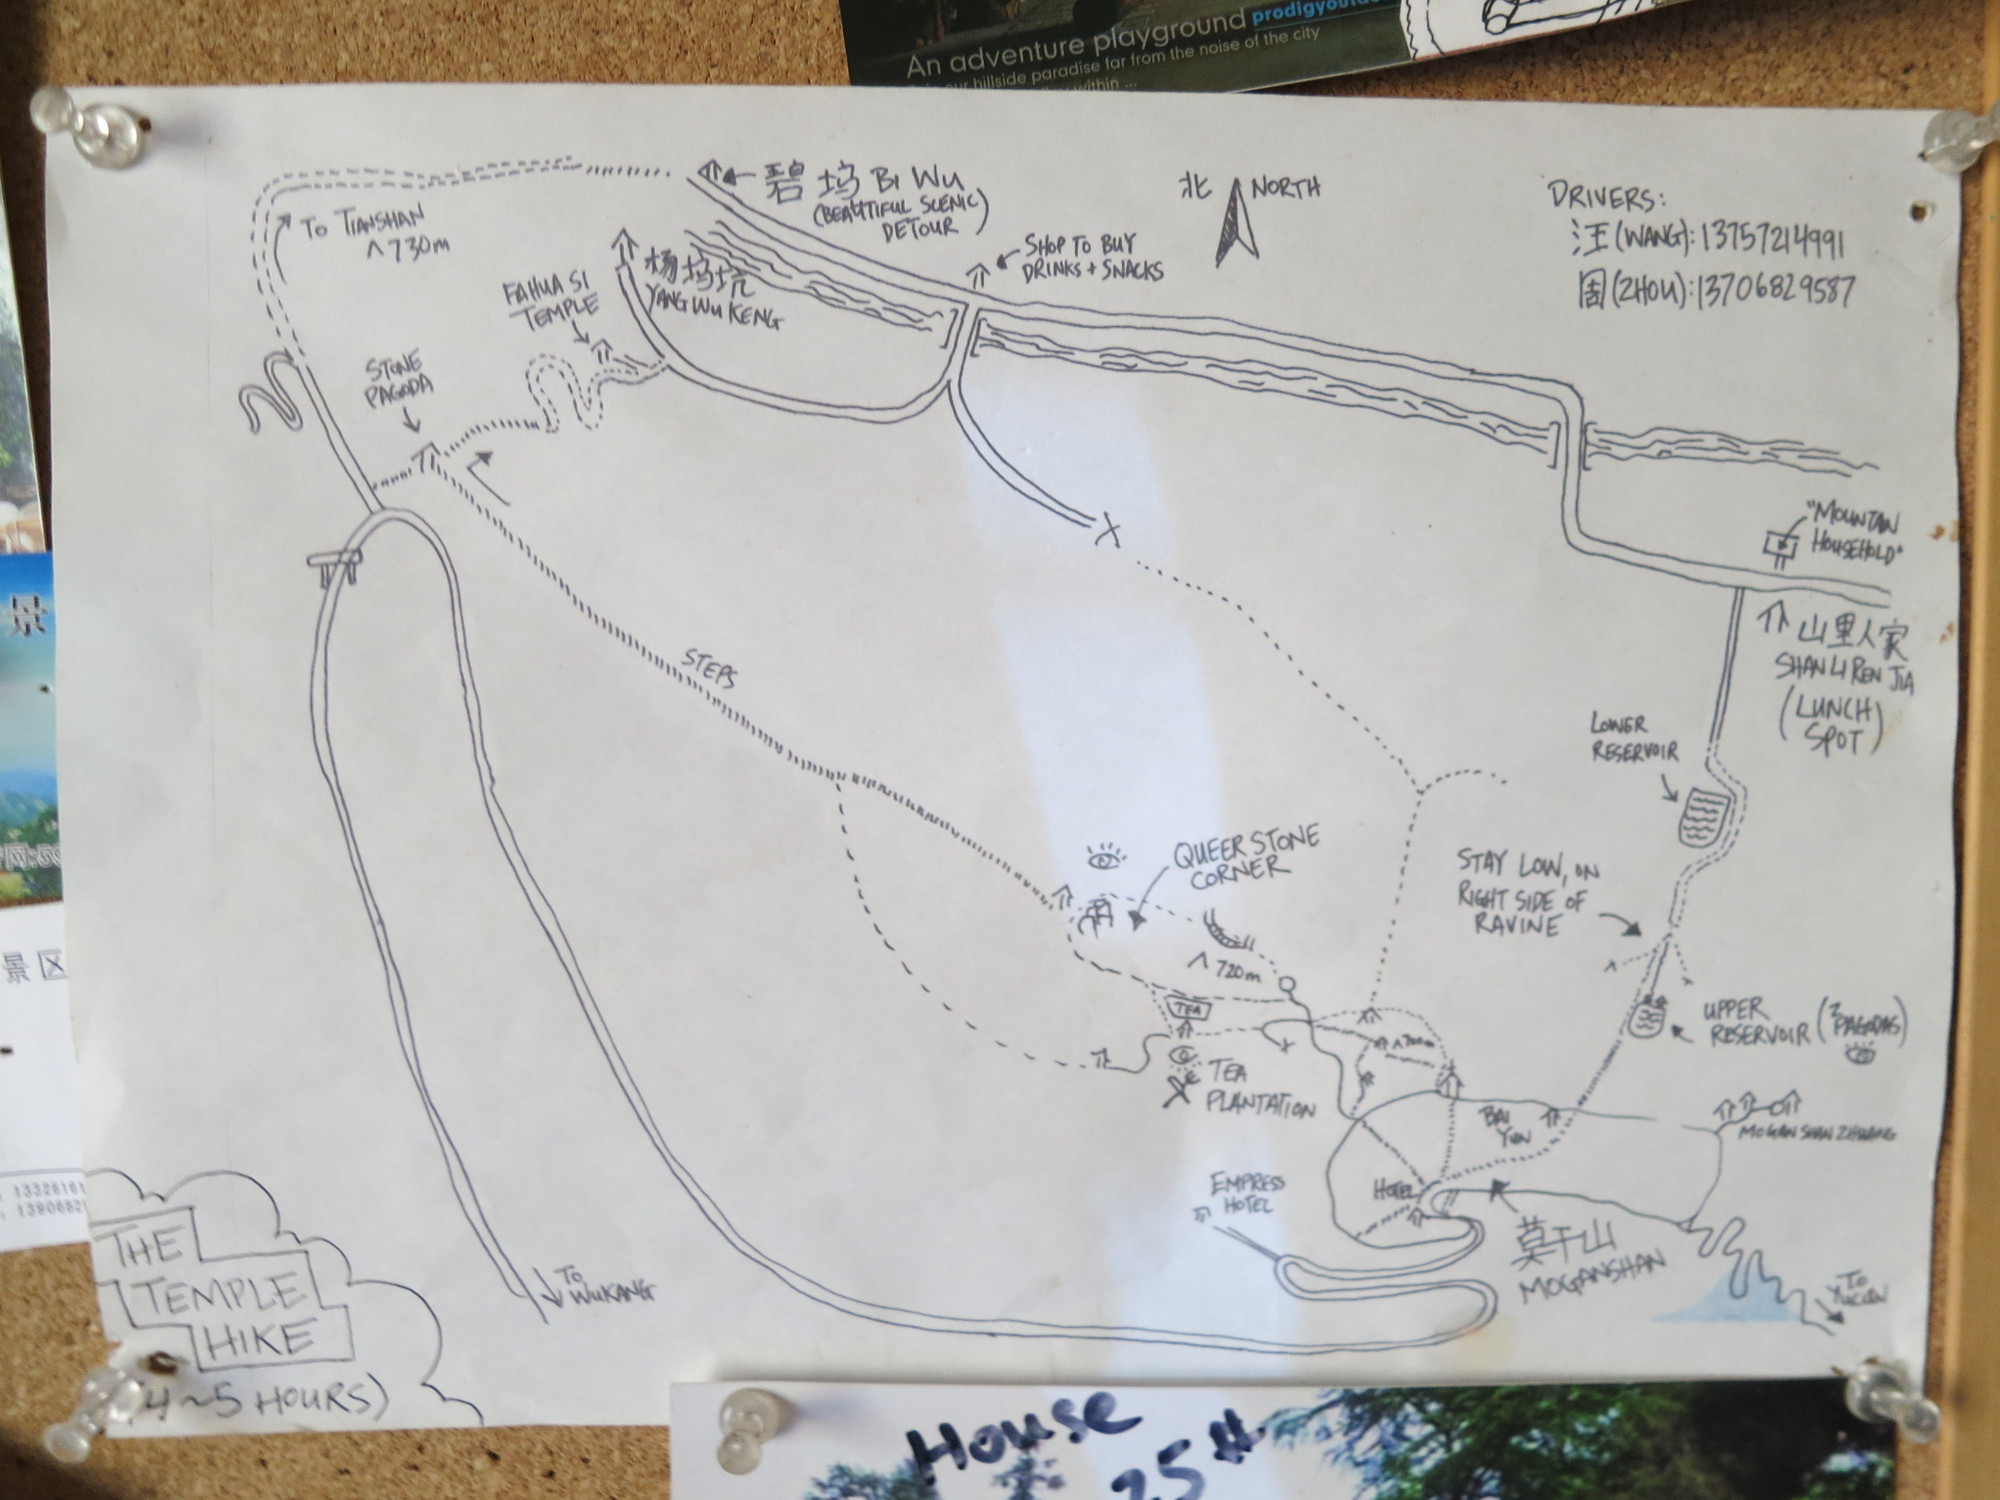 An adventure playground prodigyout
hillside paradise far from the noise of the city
within ...
碧坞 BI WU
(BEAUTIFUL SCENIC)
DETOUR
北 NORTH
DRIVERS:
汪(WANG): 13757214991
周(ZHOU): 13706829587
TO TIANSHAN
^ 730m
SHOP TO BUY
DRINKS + SNACKS
杨坞坑
YANG WU KENG
FAHUA SI
TEMPLE
STONE
PAGODA
"MOUNTAIN
HOUSEHOLD"
山里人家
SHAN LI REN JIA
(LUNCH
SPOT)
STEPS
LOWER
RESERVOIR
QUEER STONE
CORNER
STAY LOW, ON
RIGHT SIDE OF
RAVINE
^ 720m
TEA
UPPER
RESERVOIR
PAGODAS)
^ 700m
TEA
PLANTATION
BAI
YUN
MOGAN SHAN ZHUANG
EMPRESS
HOTEL
HOTEL
莫干山
MOGANSHAN
TO
WUKANG
TO
THE
TEMPLE
HIKE
(4~5 HOURS)
景
景区
House
25th